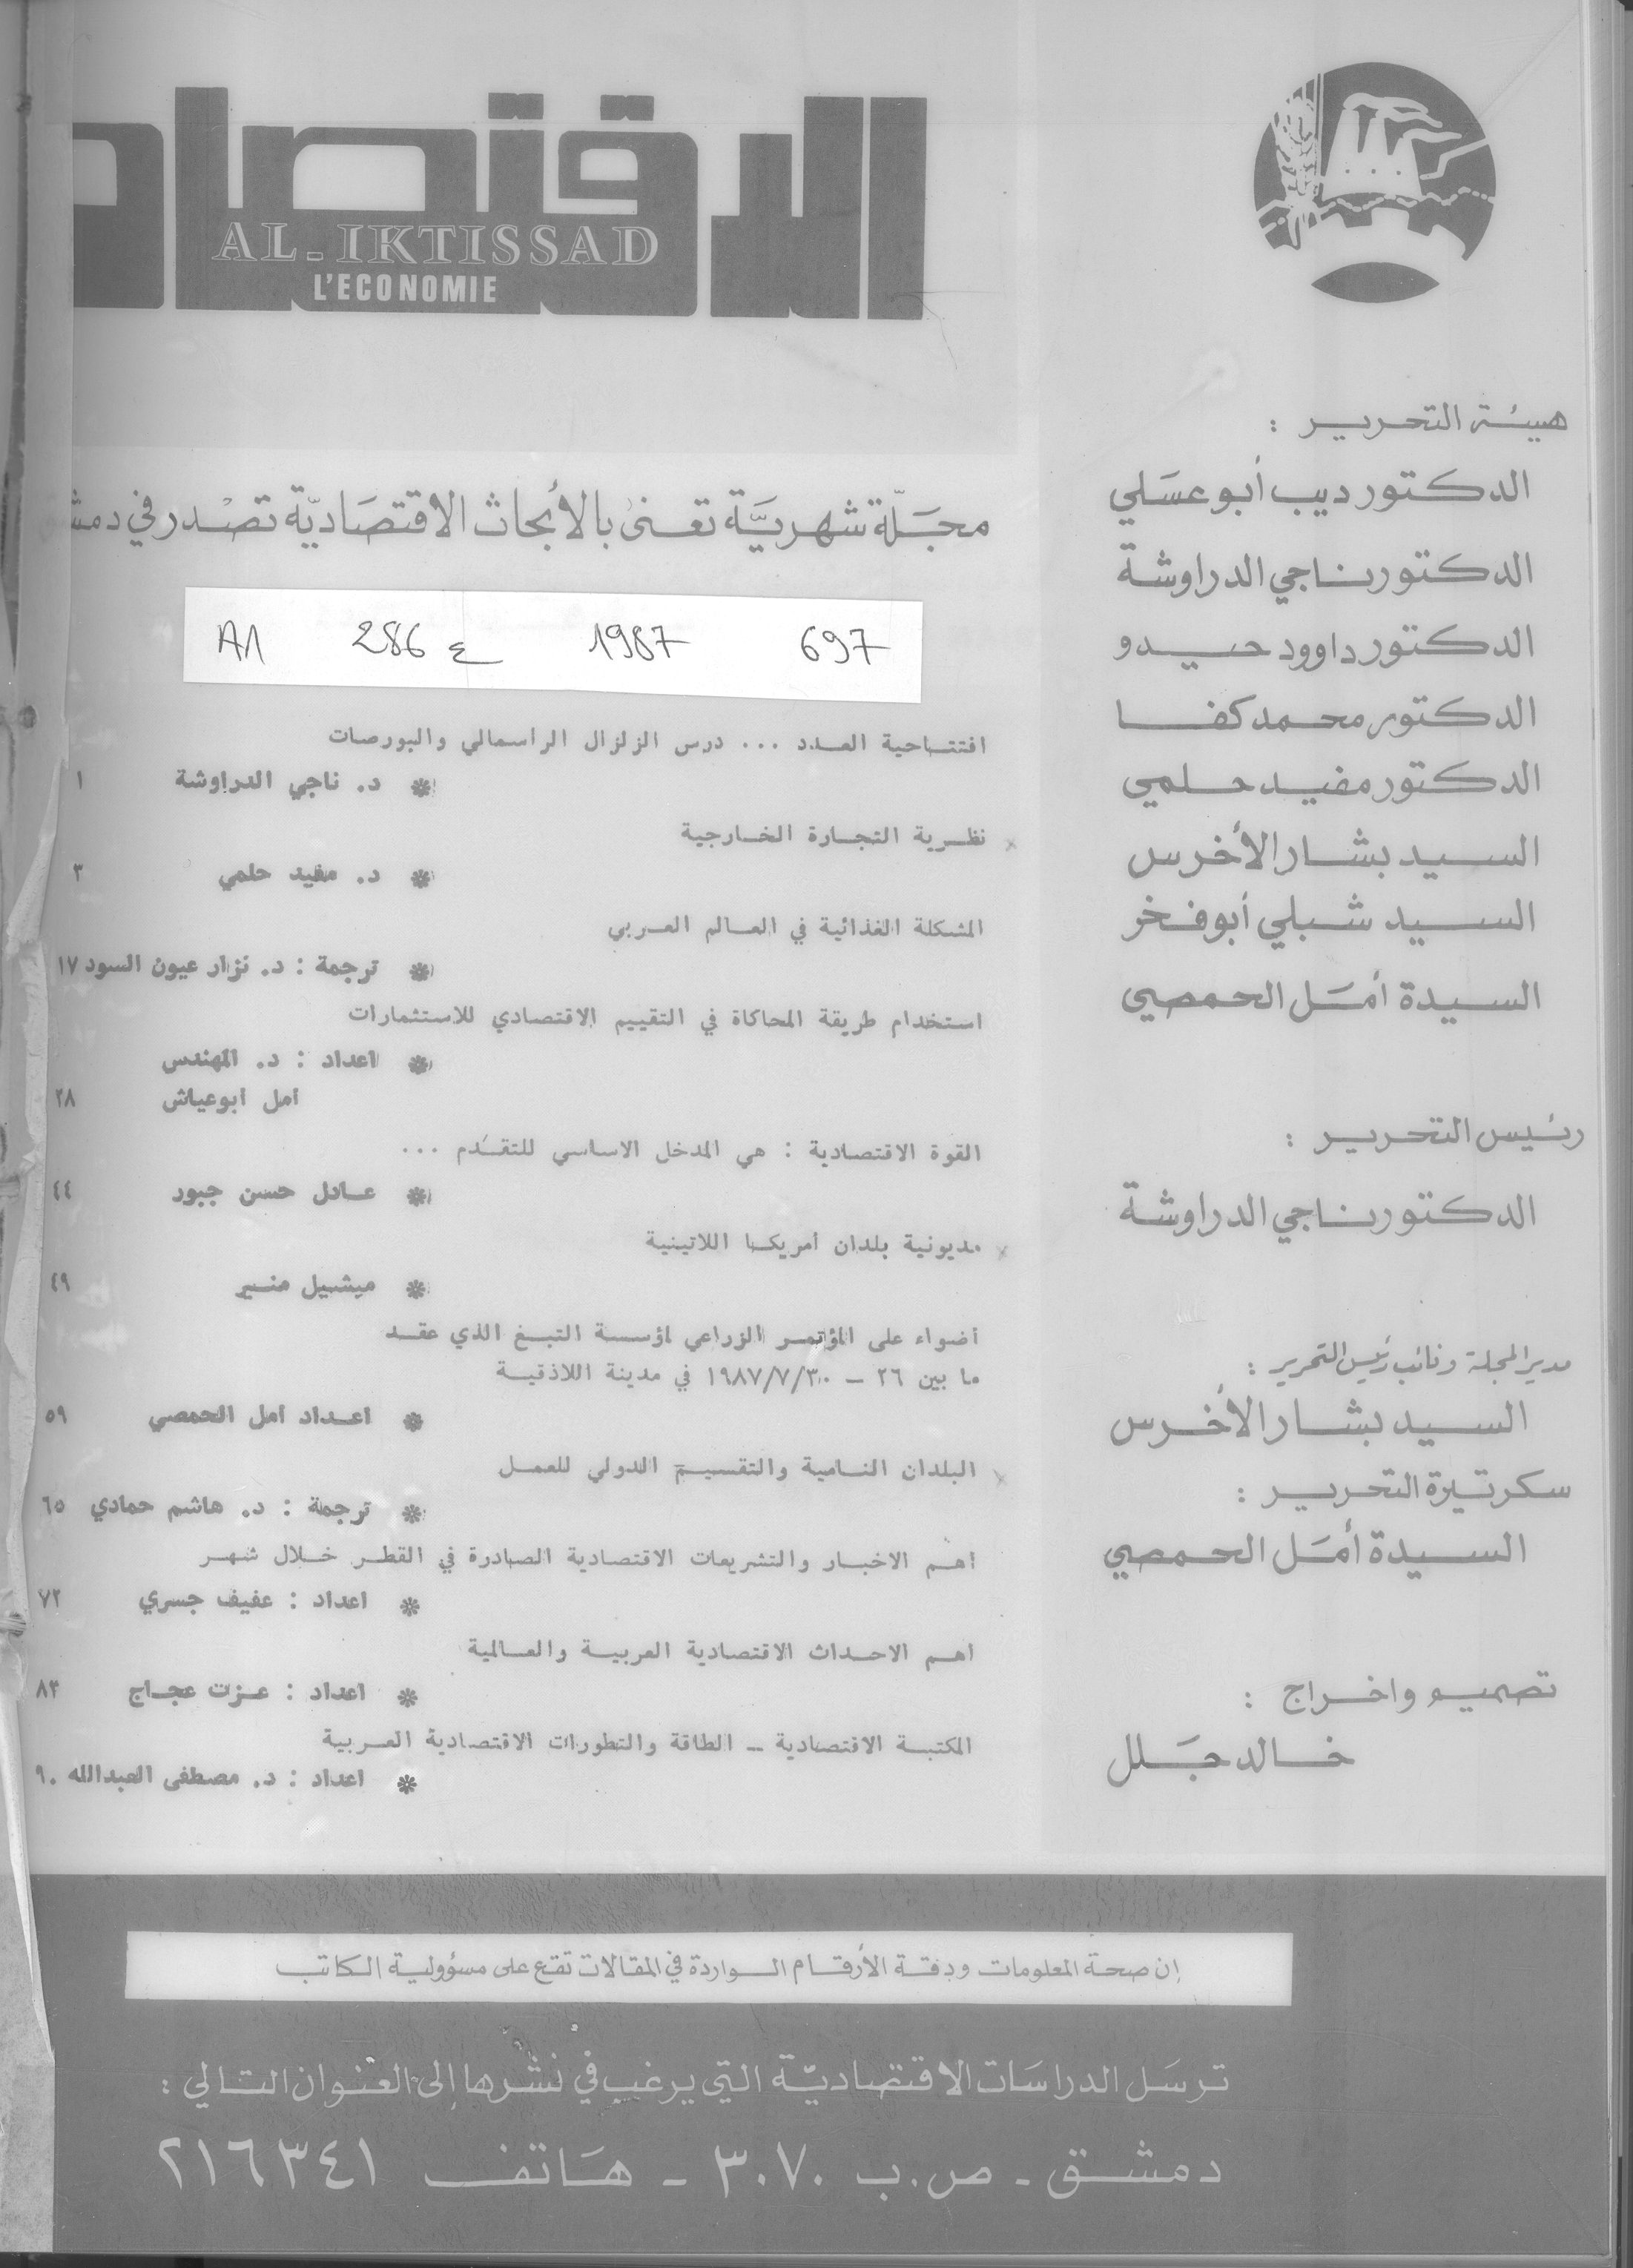 الاقتصاد
AL-IKTISSAD
L'ECONOMIE
هيئة التحرير :
الدكتور ديب أبو عسَلي
الدكتور ناجي الدراوشة
الدكتور داوود حيدو
الدكتور محمد كفا
الدكتور مفيد حلمي
السيد بشار الأخرس
السيد شبلي أبو فخر
السيدة أمَل الحمصي
رئيس التحرير :
الدكتور ناجي الدراوشة
مدير المجلة ونائب رئيس التحرير :
السيد بشار الأخرس
سكرتيرة التحرير :
السيدة أمَل الحمصي
تصميم واخراج :
خالد جَلل
مجَلّة شهريَّة تعنىٰ بالأبحاث الاقتصَاديّة تصْدر في دمش
A1 286 ع 1987 697
افتتاحية العدد ... درس الزلزال الراسمالي والبورصات
* د. ناجي الدراوشة ١
نظرية التجارة الخارجية
* د. مفيد حلمي ٣
المشكلة الغذائية في العالم العربي
* ترجمة : د. نزار عيون السود ١٧
استخدام طريقة المحاكاة في التقييم الاقتصادي للاستثمارات
* اعداد : د. المهندس
امل ابوعياش ٢٨
القوة الاقتصادية : هي المدخل الاساسي للتقدم ...
* عادل حسن جبور ٤٤
مديونية بلدان أمريكا اللاتينية
* ميشيل منير ٤٩
أضواء على المؤتمر الزراعي لمؤسسة التبغ الذي عقد
ما بين ٢٦ – ١٩٨٧/٧/٣٠ في مدينة اللاذقية
* اعداد امل الحمصي ٥٩
البلدان النامية والتقسيم الدولي للعمل
* ترجمة : د. هاشم حمادي ٦٥
اهم الاخبار والتشريعات الاقتصادية الصادرة في القطر خلال شهر
* اعداد : عفيف جسري ٧٢
اهم الاحداث الاقتصادية العربية والعالمية
* اعداد : عزت عجاج ٨٣
المكتبة الاقتصادية – الطاقة والتطورات الاقتصادية العربية
* اعداد : د. مصطفى العبدالله ٩٠
إن صحة المعلومات ودقة الأرقام الواردة في المقالات تقع على مسؤولية الكاتب
ترسَل الدراسَات الاقتصاديّة التي يرغب في نشرها إلى العنوان التالي :
دمشق - ص.ب ٣٠٧٠ - هَاتف ٢١٦٣٤١